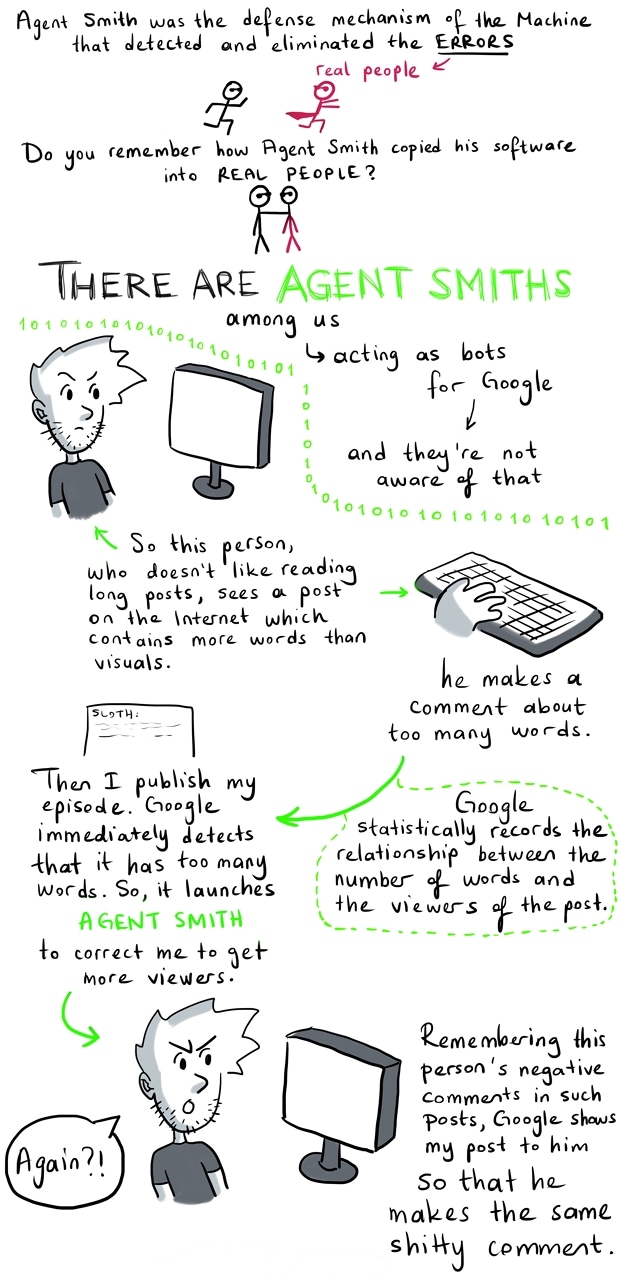 Agent Smith was the defense mechanism of the Machine
that detected and eliminated the ERRORS
real people
Do you remember how Agent Smith copied his software
into REAL PEOPLE?
THERE ARE AGENT SMITHS
among us
1010101010101010101010101
acting as bots
for Google
and they're not
aware of that
1010101
010101010101010101010101
So this person,
who doesn't like reading
long posts, sees a post
on the Internet which
contains more words than
visuals.
he makes a
comment about
too many words.
SLOTH:
Then I publish my
episode. Google
immediately detects
that it has too many
words. So, it launches
AGENT SMITH
to correct me to get
more viewers.
Google
statistically records the
relationship between the
number of words and
the viewers of the post.
Again?!
Remembering this
person's negative
comments in such
posts, Google shows
my post to him
so that he
makes the same
shitty comment.